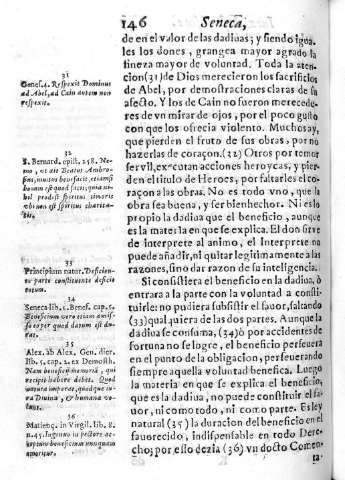 146 Seneca,
de en el valor de las dadiuas; y siendo igua-
les los dones, grangea mayor agrado la
fineza mayor de voluntad. Toda la aten-
cion (31) de Dios merecieron los sacrificios
de Abel, por demostraciones claras de su
afecto. Y los de Cain no fueron merecedo-
res de vn mirar de ojos, por el poco gusto
con que los ofrecia violento. Muchos ay,
que pierden el fruto de sus obras, por no
hazerlas de coraçon. (32) Otros por temor
servil, executan acciones heroycas, y pier-
den el titulo de Heroes, por faltarles el co-
raçon a las obras. No es todo vno, que la
obra sea buena, y ser bienhechor. Ni es lo
propio la dadiua que el beneficio, aunque
es la materia en que se explica. El don sirve
de interprete al animo, el Interprete no
puede añadir, ni quitar legitimamente a las
razones, sino dar razon de su inteligencia.
Si consistiera el beneficio en la dadiua, ò
entrara a la parte con la voluntad a consti-
tuirle: no pudiera subsistir el fauor, faltando
(33) qualquiera de las dos partes. Aunque la
dadiua se consuma, (34) ò por accidentes de
fortuna no se logre, el beneficio persevera
en el punto de la obligacion, perseverando
siempre aquella voluntad benefica. Luego
la materia en que se explica el beneficio,
que es la dadiua, no puede constituir el fa-
uor, ni como todo, ni como parte. Es ley
natural (35) la duracion del beneficio en el
fauorecido, indispensable en todo Dere-
cho; por esso dezia (36) vn docto Comen-
ta-
31
Genes. 4. Respexit Dominus
ad Abel, ad Cain autem non
respexit.
32
S. Bernard. epist. 258. Ne-
mo, vt ait Beatus Ambro-
sius, inuitus bene facit, etiamsi
bonum est quod facit; quia ni-
hil prodest spiritus timoris
vbi non est spiritus charita-
tis.
33
Principium natur. Deficien-
te parte constituente deficit
totum.
34
Seneca lib. 1. Benef. cap. 5.
Beneficium vero etiam amis-
so eo per quod datum est du-
rat.
35
Alex. ab Alex. Gen. dier.
lib. 5. cap. 2. ex Demosth.
Nam beneficij memoriā, qui
recipit habere debet. Quod
natura imperat, quod que iu-
ra Diuina, & humana vo-
lunt.
36
Matienç. in Virgil. lib. 8.
n. 45. Ingenuo in pectore ac-
ceptum beneficium nunquam
amoritur.